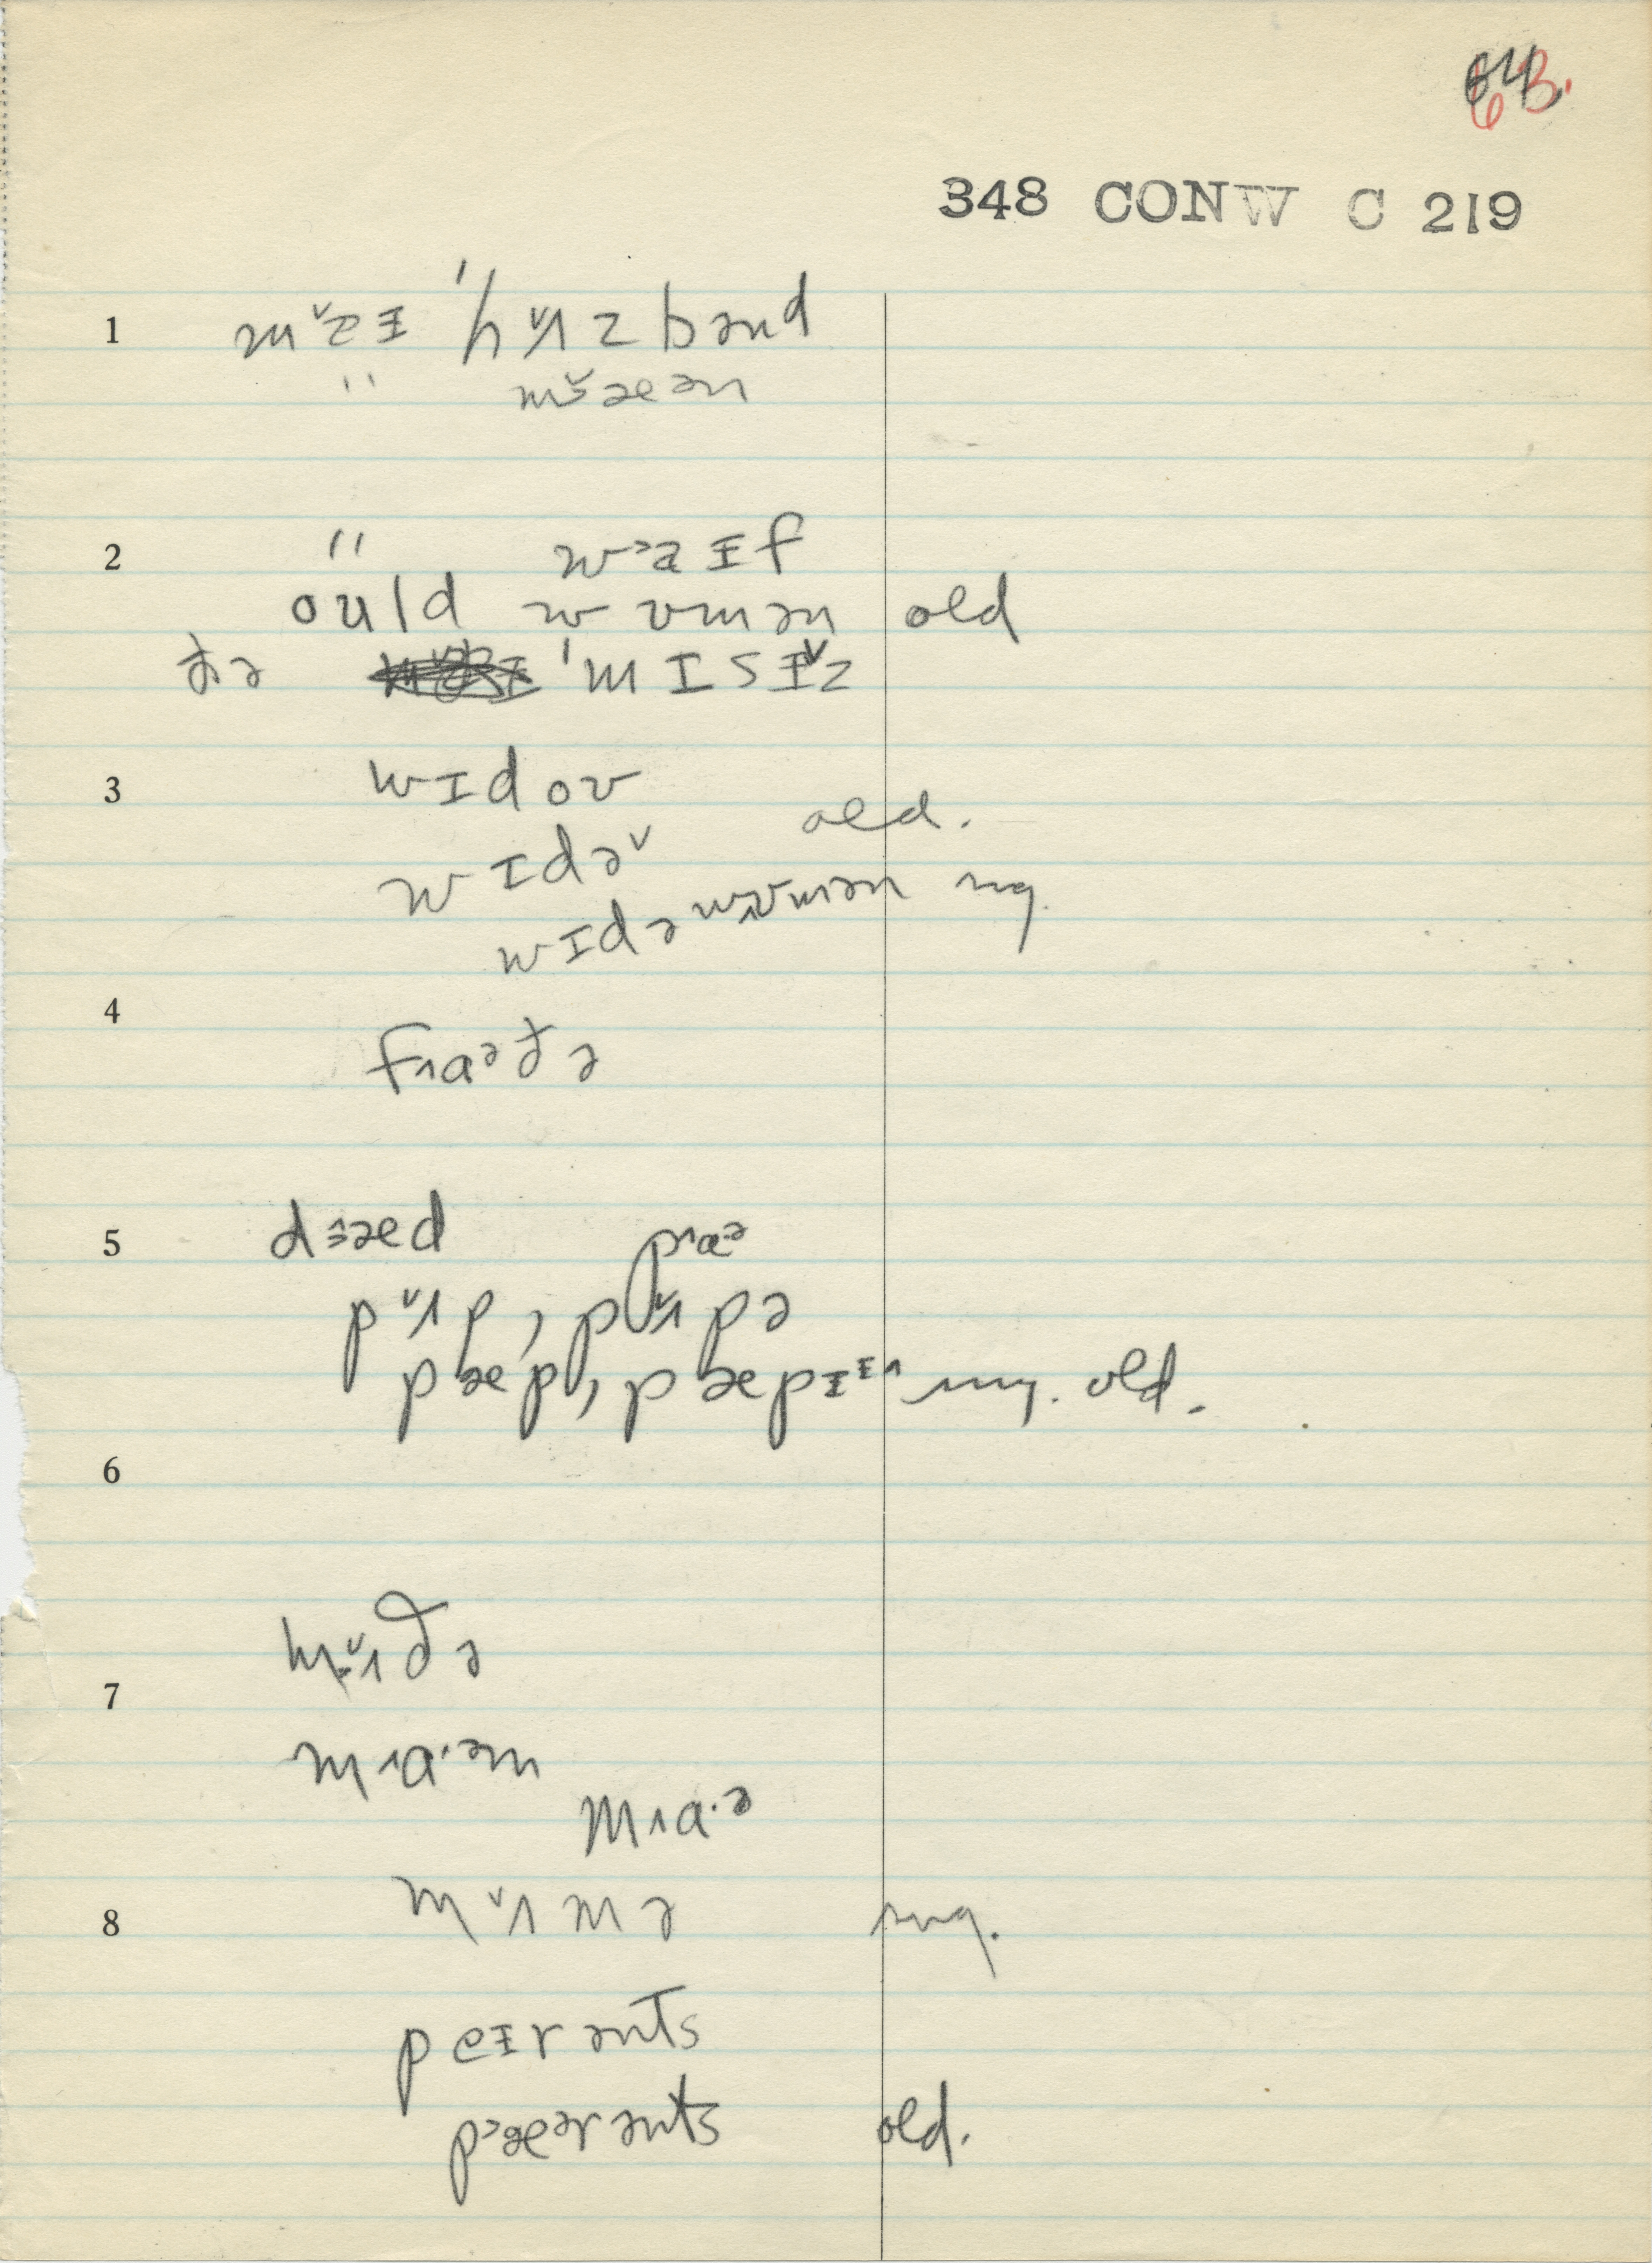 63.
64.
348 CONW C 219
1 m˅aɪ ˈhʌ˅zbənd
" m˅ɛæən
2 " w˃aɪf
oʊld wʊmən old
ðə ˈmɪsɪ˅z
3 wɪdoʊ
wɪdə˅ old.
wɪdəwʊmən ng.
4 fɑ˄ᵊðə
5 dɛ˄æd pɑ˄·ə
pʌ˅p, pʌ˅pə
pæp, pæpɪɪ˄ ng. old.
6
mʌ˅ðə
7
mɑ˄·əm
mɑ˄·ə
8 mʌ˅mə ng.
peɪrənts
p˃æərənts old.